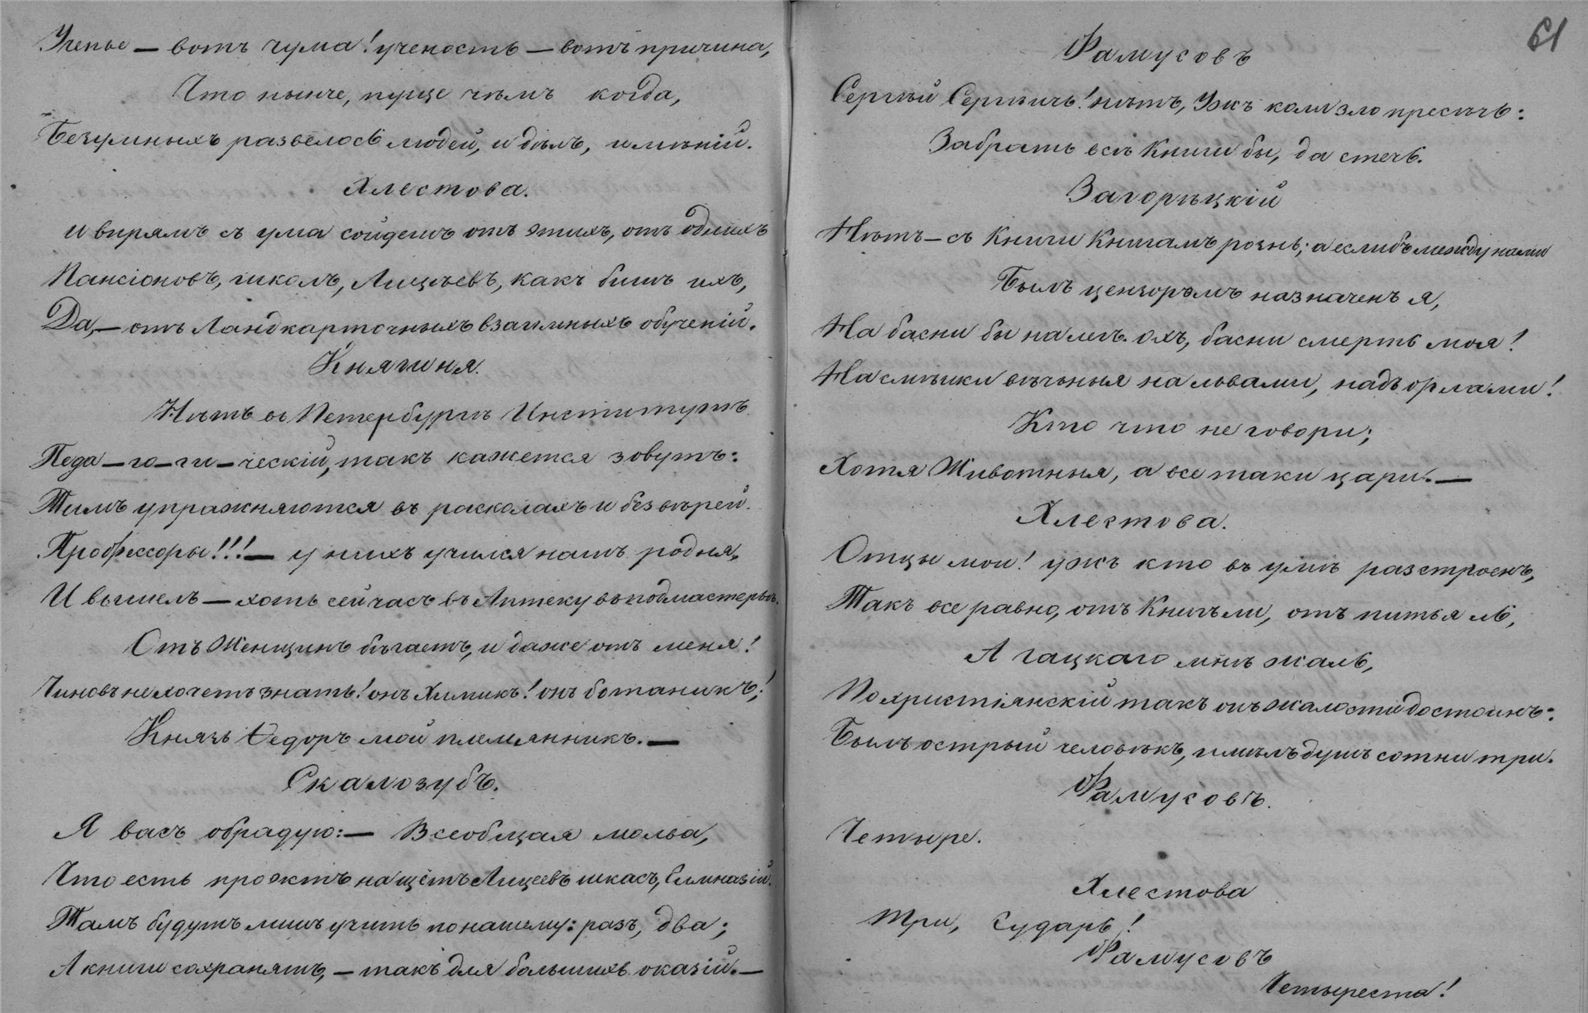 Ученье — вотъ чума! ученость — вотъ причина,
Что нынче, пуще чѣмъ когда,
Безумныхъ развелось людей, и дѣлъ, имѣній.
Хлестова.
И впрямъ съ ума сойдешь отъ этихъ, отъ однихъ
Пансіоновъ, школъ, Лицѣевъ, какъ бишь ихъ,
Да, — отъ Ландкарточныхъ взаимныхъ обученій.
Княгиня.
Нѣтъ въ Петербургѣ Институтъ
Педа — го — ги — ческій, такъ кажется зовутъ:
Тамъ упражняются въ расколахъ и безвѣрьи.
Профессоры!!! — у нихъ учился нашъ родня,
И вышелъ — хоть сей часъ въ Аптеку въ подмастерьи.
Отъ Женщинъ бѣгаетъ, и даже отъ меня!
Чиновъ не хочетъ знать! онъ Химикъ! онъ ботаникъ!
Князь Ѳедоръ мой племянникъ. —
Скалозубъ.
Я васъ обрадую: — Всеобщая молва,
Что есть прожктъ на щётъ Лицеевъ школъ, Гимназій.
Тамъ будутъ лишь учить по нашему: разъ, два;
А книги сохранятъ, — такъ для большихъ оказій. —
61
Фамусовъ
Сергѣй Сергѣичь! нѣтъ, Ужъ коли зло пресѣчь:
Забрать всѣ Книги бы, да сжечь.
Загорѣцкій
Нѣтъ — съ Книги Книгамъ рознь; а еслибъ между нами
Былъ цензоромъ назначенъ я,
На басни бы налегъ. охъ, басни смерть моя!
Насмѣшки вѣчныя на львами, надъ орлами!
Кто что не говори;
Хотя Животныя, а все таки цари. —
Хлестова.
Отцы мои! ужъ кто въ умѣ разстроенъ,
Такъ все равно, отъ Книгъ ли, отъ питья ль,
А Чацкаго мнѣ жаль,
По христіянскій такъ онъ жалости достоинъ:
Былъ острый человѣкъ, имѣлъ душъ сотни три.
Фамусовъ.
Четыре.
Хлестова
Три, Сударь!
Фамусовъ
Четыреста!